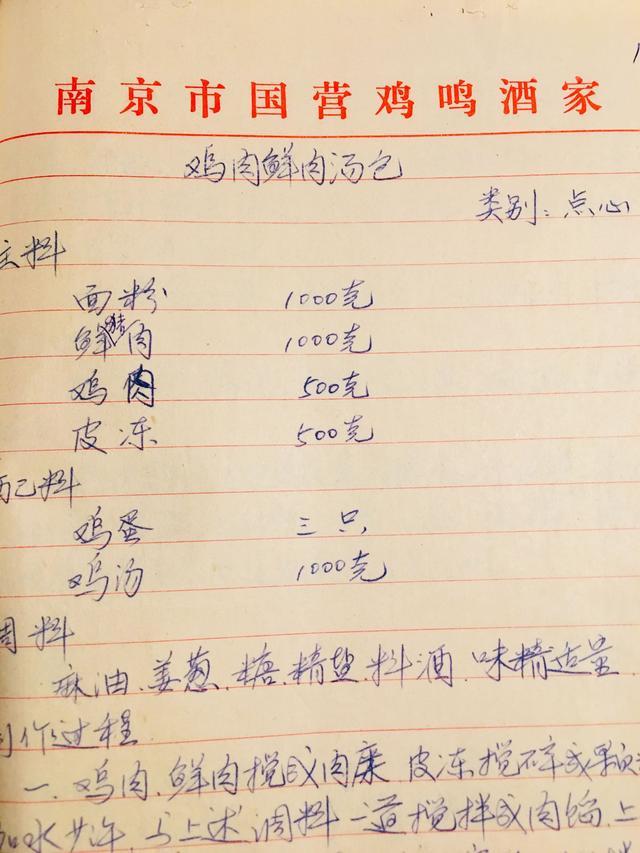 南京市国营鸡鸣酒家
鸡肉鲜肉汤包
类别:点心
主料
面粉 1000克
鲜猪肉 1000克
鸡肉 500克
皮冻 500克
配料
鸡蛋 三只
鸡汤 1000克
调料
麻油、姜葱、糖、精盐、料酒、味精适量
制作过程
一、鸡肉、鲜肉搅成肉糜 皮冻搅碎成颗粒
加水少许,与上述调料一道搅拌成肉馅,上